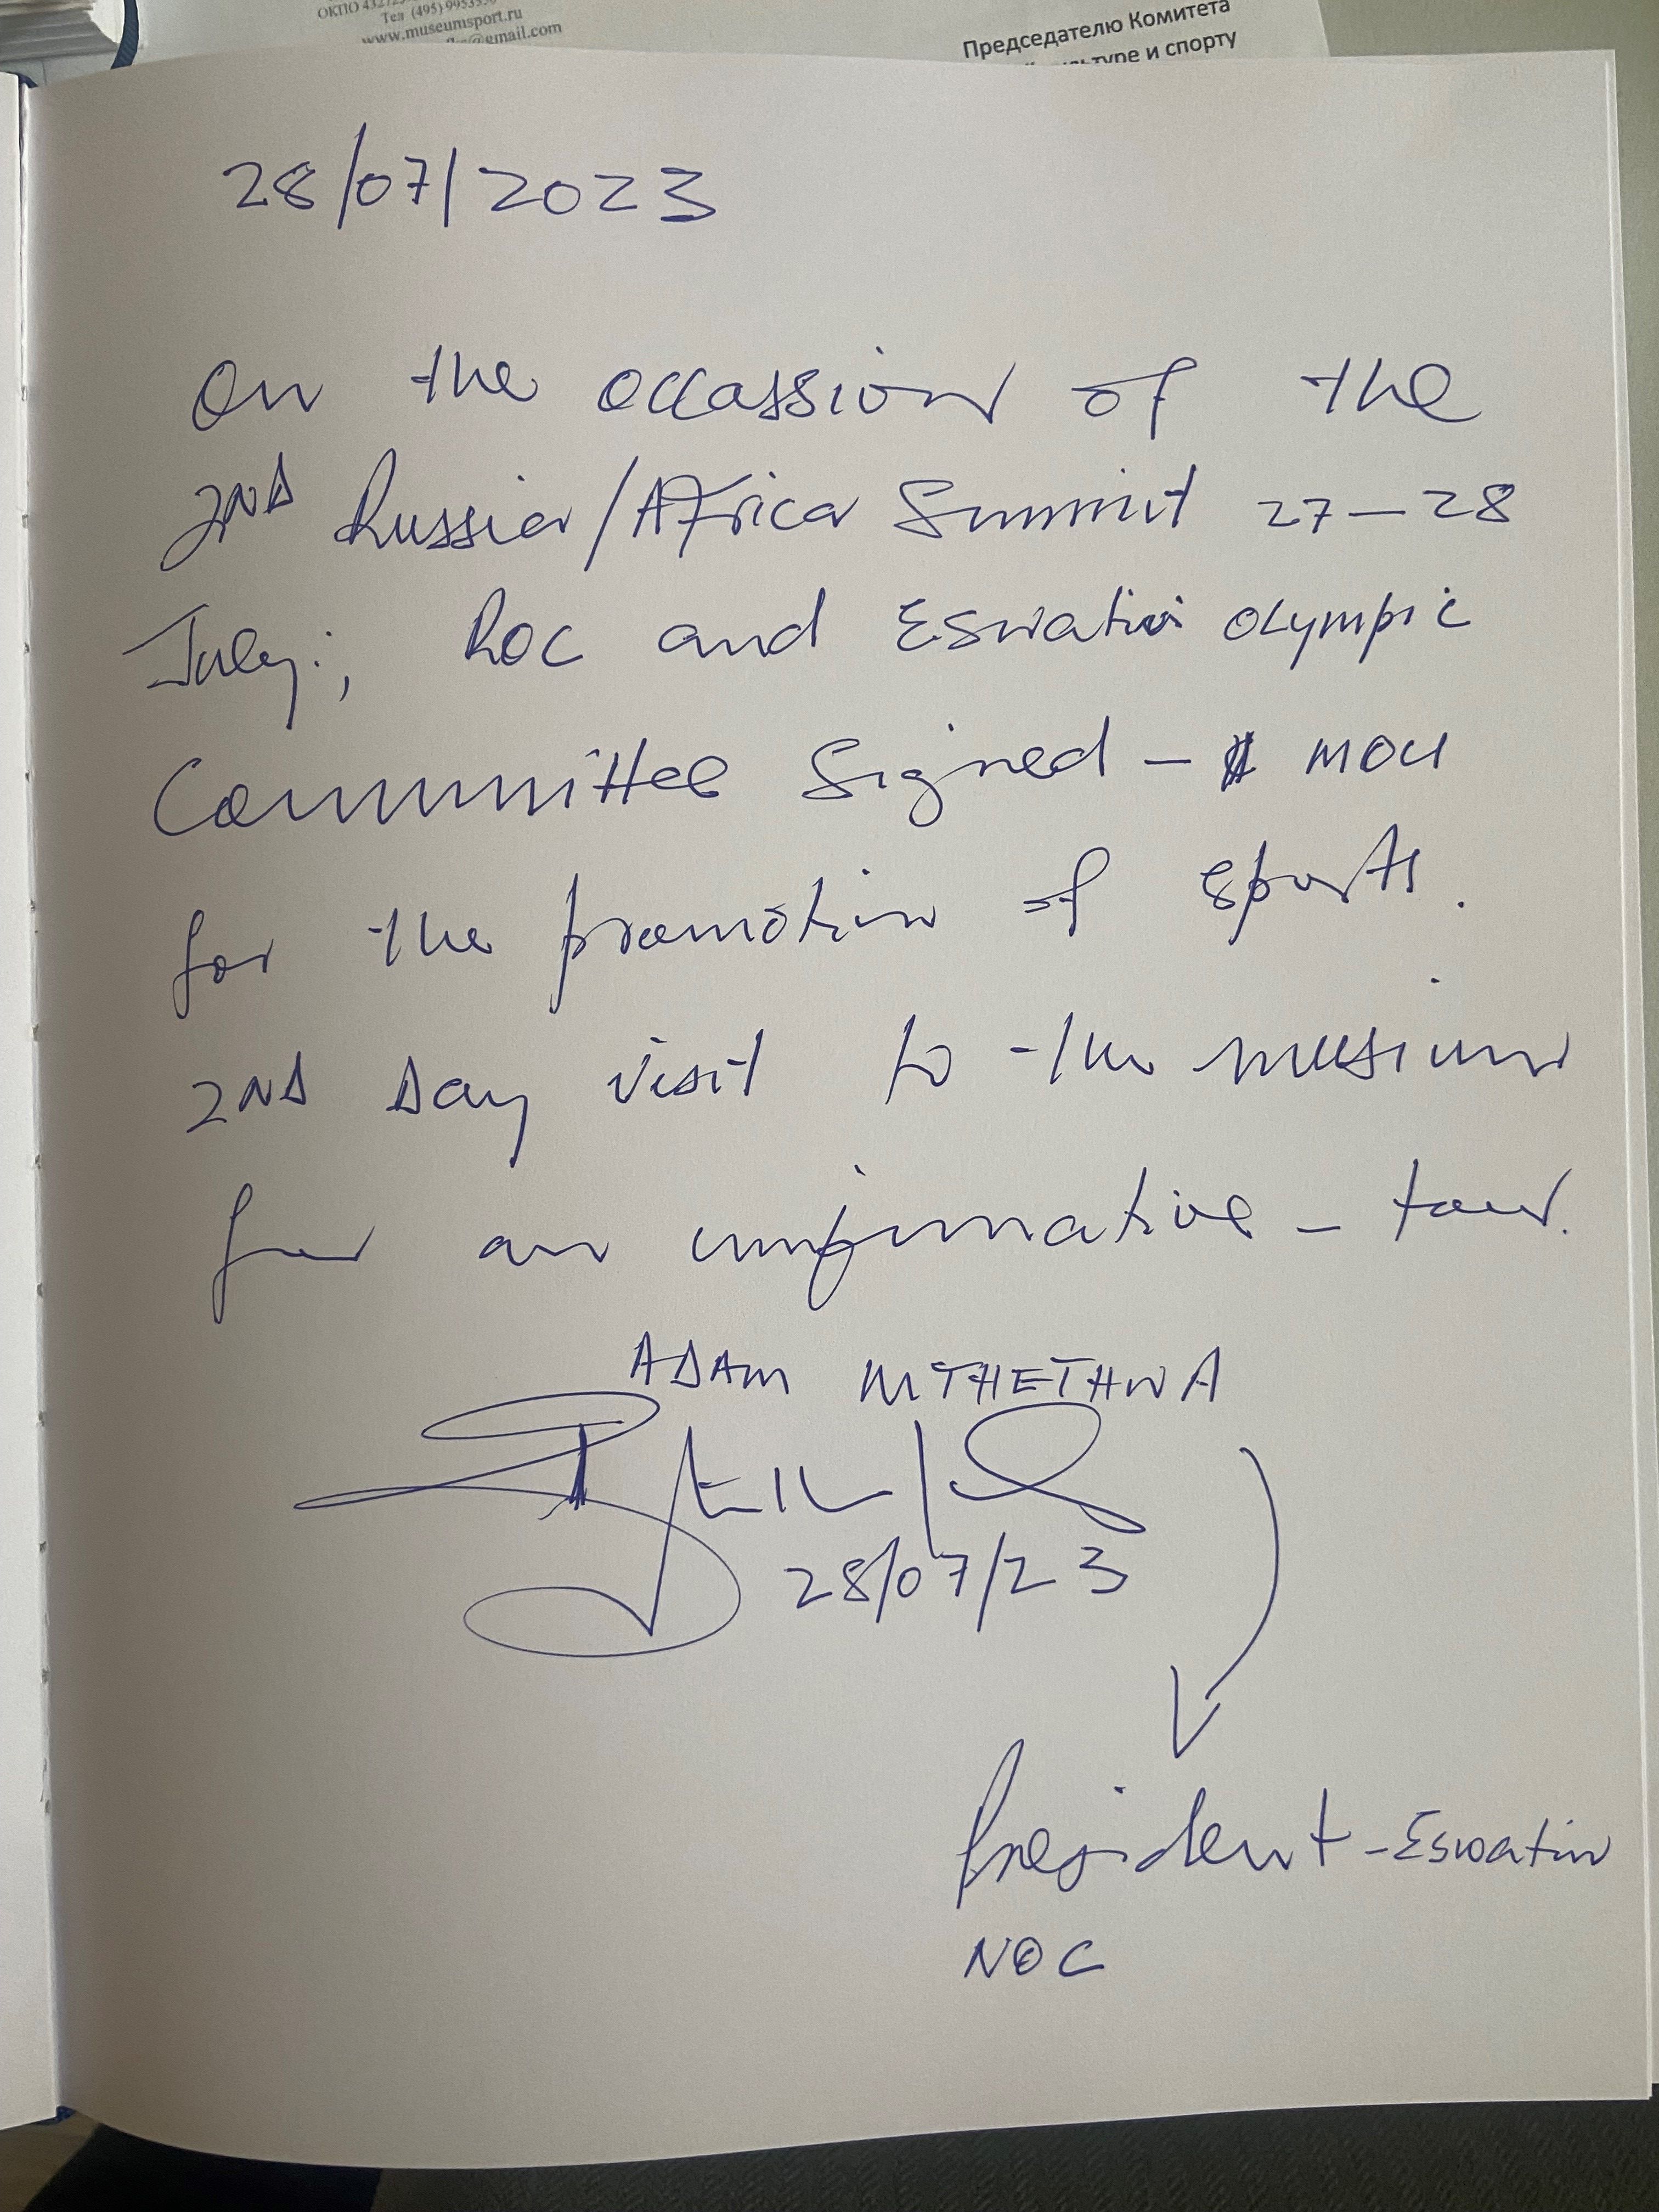 Тел (495)
www.museumsport.ru
@gmail.com
Председателю Комитета
и спорту
28/07/2023
On the occassion of the
2ND Russia/Africa Summit 27-28
July:, ROC and Eswatini Olympic
Committee Signed - MOU
for the promotion of sports.
2ND Day visit to the musium
for an informative - tour.
ADAM MTHETHWA
28/07/23
President - Eswatini
NOC